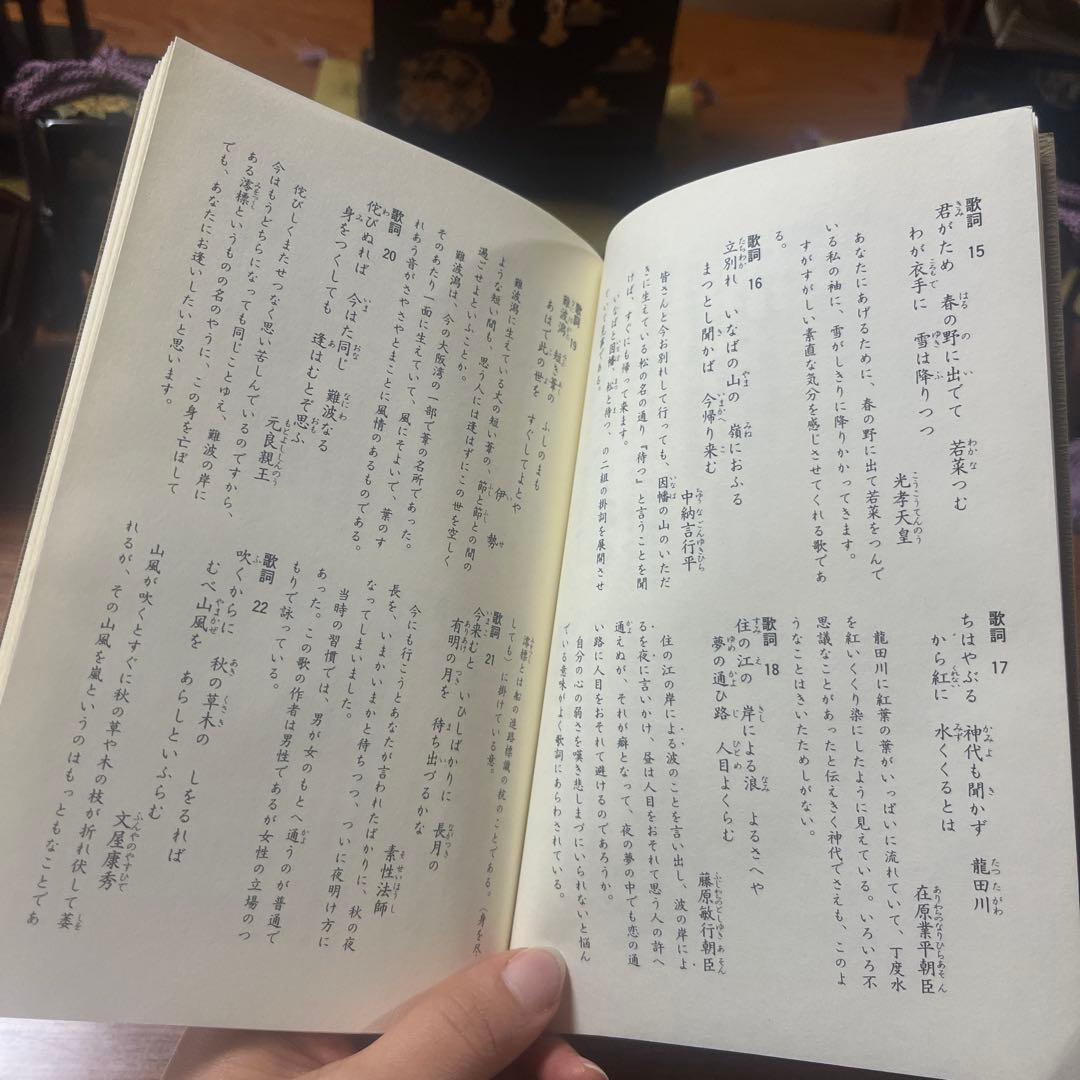 歌詞 15
君がため 春の野に出でて 若菜つむ
わが衣手に 雪は降りつつ
光孝天皇
あなたにあげるために、春の野に出て若菜をつんで
いる私の袖に、雪がしきりに降りかかってきます。
すがすがしい素直な気分を感じさせてくれる歌であ
る。
歌詞 16
立別れ いなばの山の 嶺におふる
まつとし聞かば 今帰り来む
中納言行平
皆さんと今お別れして行っても、因幡の山のいただ
きに生えている松の名の通り『待つ』と言うことを聞
けば、すぐにも帰って来ます。
いなばと因幡、松と待つ、の二組の掛詞を展開させ
ていて見事である。
歌詞 17
ちはやぶる 神代も聞かず 龍田川
から紅に 水くくるとは
在原業平朝臣
龍田川に紅葉の葉がいっぱいに流れていて、丁度水
を紅いくくり染にしたように見えている。いろいろ不
思議なことがあったと伝えきく神代でさえも、このよ
うなことはきいたためしがない。
歌詞 18
住の江の 岸による浪 よるさへや
夢の通ひ路 人目よくらむ
藤原敏行朝臣
住の江の岸による波のことを言い出し、波の岸によ
るを夜に言いかけ、昼は人目をおそれて思う人の許へ
通えぬが、それが癖となって、夜の夢の中でも恋の通
い路に人目をおそれて避けるのであろうか。
自分の心の弱さを嘆き悲しまづにいられないと悩ん
でいる意味がよく歌詞にあらわされている。
歌詞 19
難波潟 短き葦の ふしのまも
あはで此の世を すぐしてよとや
伊勢
難波潟に生えている丈の短い葦の、節と節との間の
ような短い間も、思う人には逢はずにこの世を空しく
過ごせよといふことか。
難波潟は、今の大阪湾の一部で葦の名所であった。
そのあたり一面に生えていて、風にそよいで、葉のす
れあう音がさやさやとまことに風情のあるものである。
歌詞 20
侘びぬれば 今はた同じ 難波なる
身をつくしても 逢はむとぞ思ふ
元良親王
侘びしくまたせつなく思い苦しんでいるのですから、
今はもうどちらになっても同じことゆえ、難波の岸に
ある澪標というものの名のやうに、この身を亡ぼして
でも、あなたにお逢いしたいと思います。
澪標とは船の進路標識の杭のことである。(身を尽
しても)に掛けている意。
歌詞 21
今来むと いひしばかりに 長月の
有明の月を 待ち出づるかな
素性法師
今にも行こうとあなたが言われたばかりに、秋の夜
長を、いまかいまかと待ちつつ、ついに夜明け方に
なってしまいました。
当時の習慣では、男が女のもとへ通うのが普通で
あった。この歌の作者は男性であるが女性の立場のつ
もりで詠っている。
歌詞 22
吹くからに 秋の草木の しをるれば
むべ山風を あらしといふらむ
文屋康秀
山風が吹くとすぐに秋の草や木の枝が折れ伏して萎
れるが、その山風を嵐というのはもっともなことであ